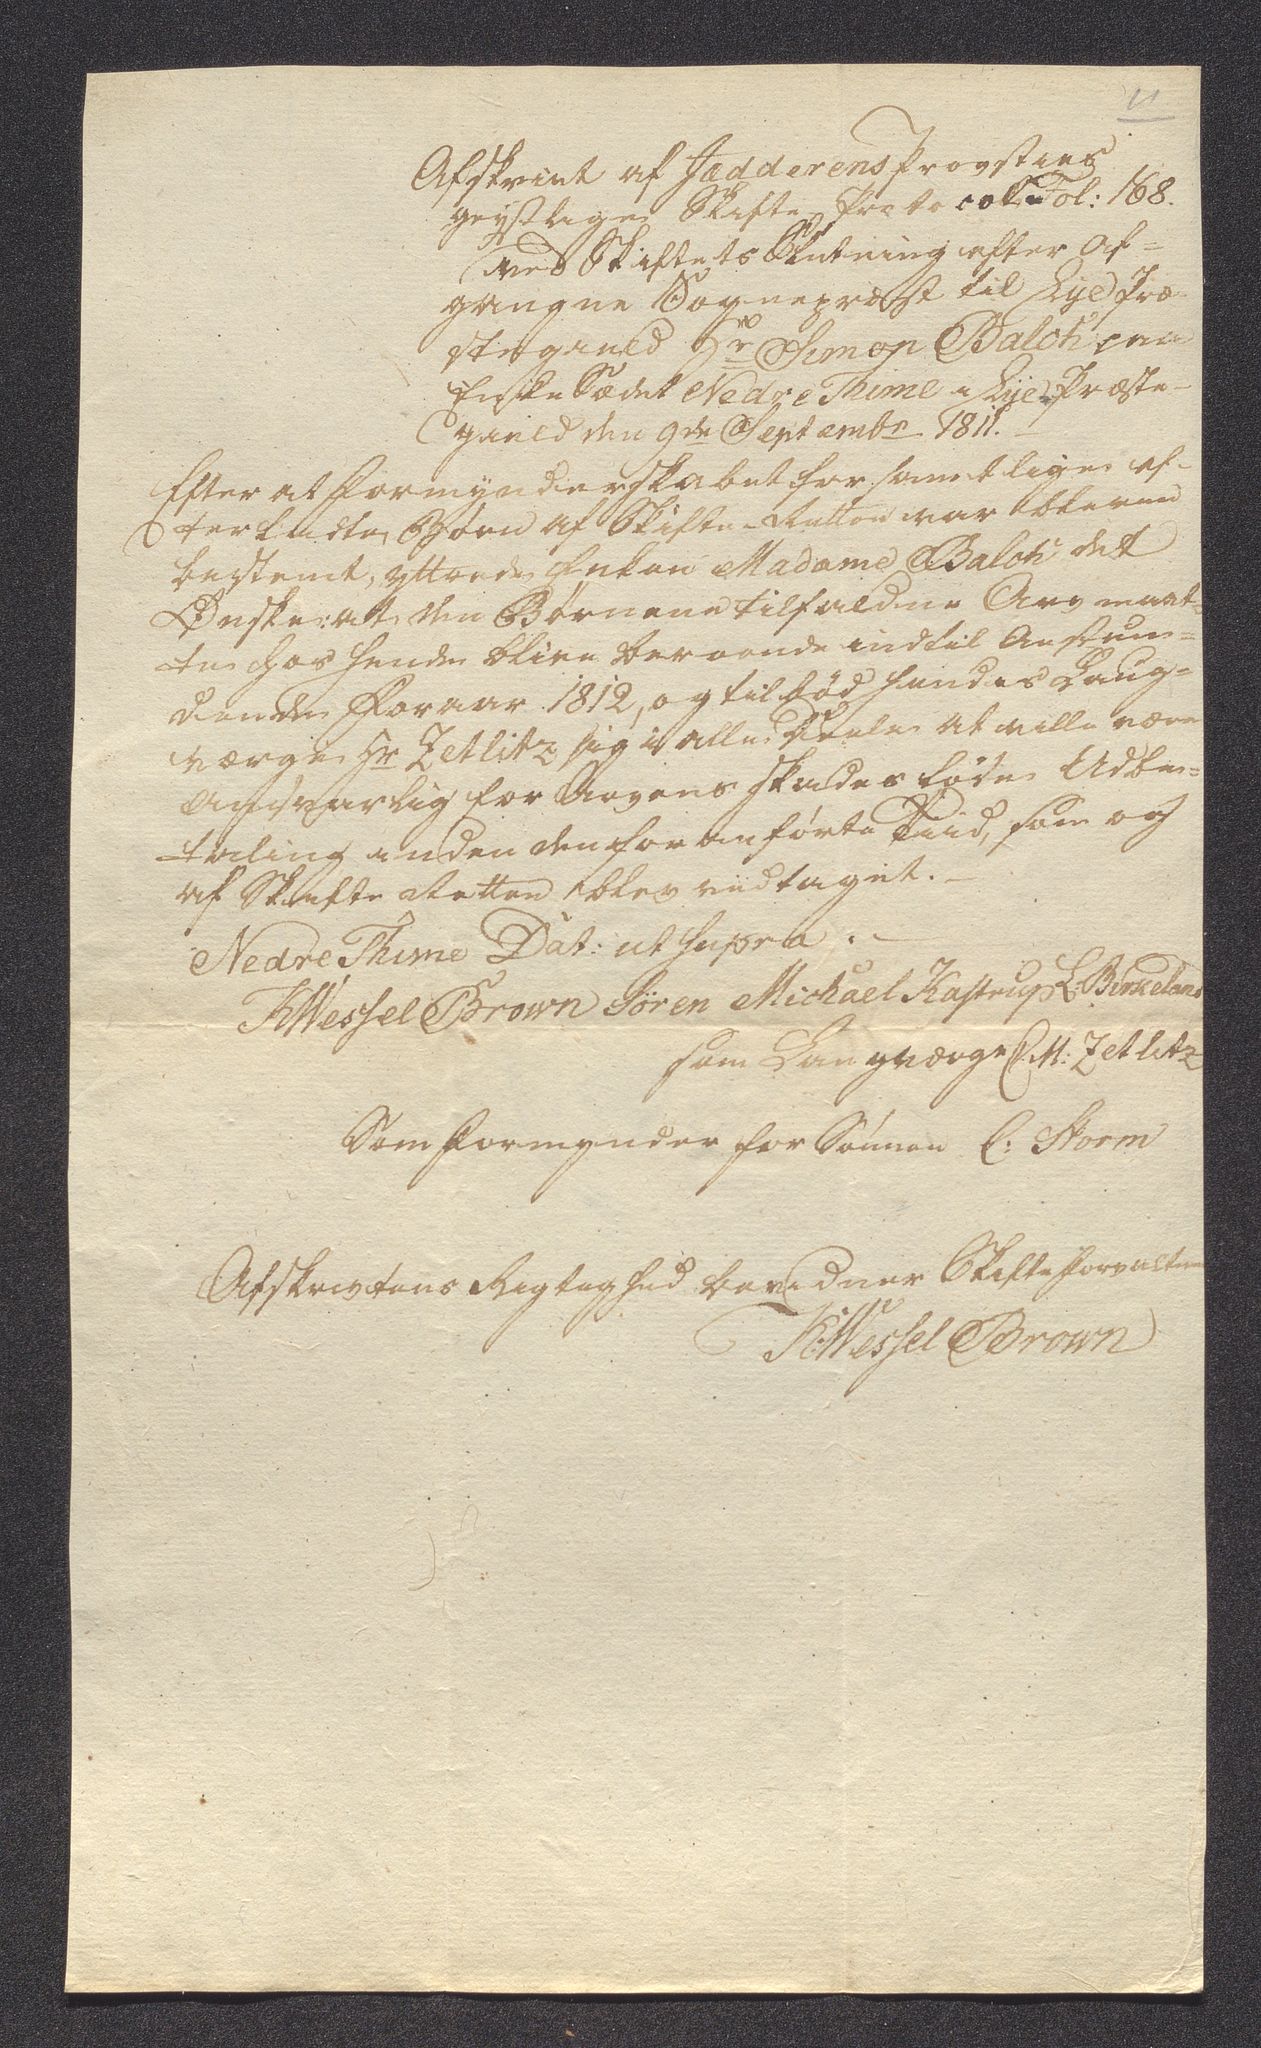 11
Afskrivt af Jædderens Provsties
geistlige Skifte Protocol Fol: 168.
Ved Skiftets Slutning efter af-
gangne Sognepræst til Lye Præ-
stegield Hr Simon Balch paa
Enke Sædet Nedre Thime i Lye Præste-
gield den 9de Septembr 1811.
Efter at Formynderskabet for samtlige ef-
terladte Børn af Skifte-Retten var bleven
bestemt, yttrede Enken Madame Balch det
Ønske: at den Børnene tilfaldne Arv maat-
te hos hende blive beroende indtil Anstun-
dende Foraar 1812, og tilbød hendes Laug-
værge Hr Zetlitz sig i alle Deele at ville være
ansvarlig for Arvens skadesløse Udbe-
taling inden den foranførte Tiid, som og
af Skifte Retten blev vedtaget. —
Nedre Thime Dat: ut supra. —
K Wessel Brown Sören Michael Kastrup L: Birkeland
som Laugværge C. M: Zetlitz
Som Formynder for Sønnen C: Storm
Afskrivtens Rigtighed bevidner Skifteforvalteren
K. Wessel Brown